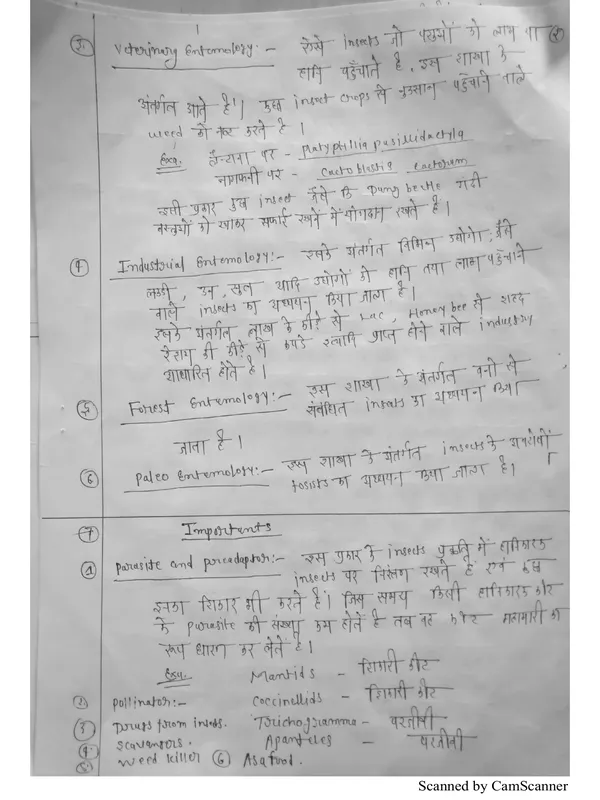 ③ Veterinary Entemology:- ऐसे insects जो पशुयों को लाभ या ②
हानि पहुँचाते है, इस शाखा के
अंतर्गत आते है। कुछ insect crops से नुक्सान पहुँचाने वाले
weed को नष्ट करते है।
Exa. लैन्टाना पर - Platyphillia pusillidactyla
नागफनी पर - Cactoblestis cactorum
इसी प्रकार कुछ insect जैसे कि Dung beetle गंदी
वस्तुयों को खाकर सफाई रखने में योगदान रखते है।
④ Industrial Entemology:- इसके अंतर्गत विभिन्न उद्योगो, जैसे
लकडी, उन, सूत यादि उद्योगों को हानि तथा लाभ पहुँचाने
वाले insects का अध्ययन किया जाता है।
इसके अंतर्गत लाख के कीडे से Lac, Honey bee से शहद
रेशम की कीडे से कपडे इत्यादि प्राप्त होने वाले industry
आधारित होते है।
⑤ Forest Entemology:- इस शाखा के अंतर्गत वनो से
संबंधित insects का अध्ययन किया
जाता है।
⑥ Paleo Entemology:- इस शाखा के अंतर्गत insects के अवशेषों
fosists का अध्ययन किया जाता है।
⑦ Importents
① parasite and preadaptor:- इस प्रकार के insects प्रकृति में हानिकारक
insects पर नियंत्रण रखते है एवं कुछ
इनका शिकार भी करते है। जिस समय किसी हानिकारक कीट
के parasite की संख्या कम होते है तब वह कीट महामारी का
रूप धारण कर लेते है।
Exa. Mantids - शिकारी कीट
② pollinator:- Coccinellids - शिकारी कीट
③ Drugs from insects. Trichogramma - परजीवी
④ scavanters. Apanteles - परजीवी
⑤ weed killer ⑥ As a food.
Scanned by CamScanner